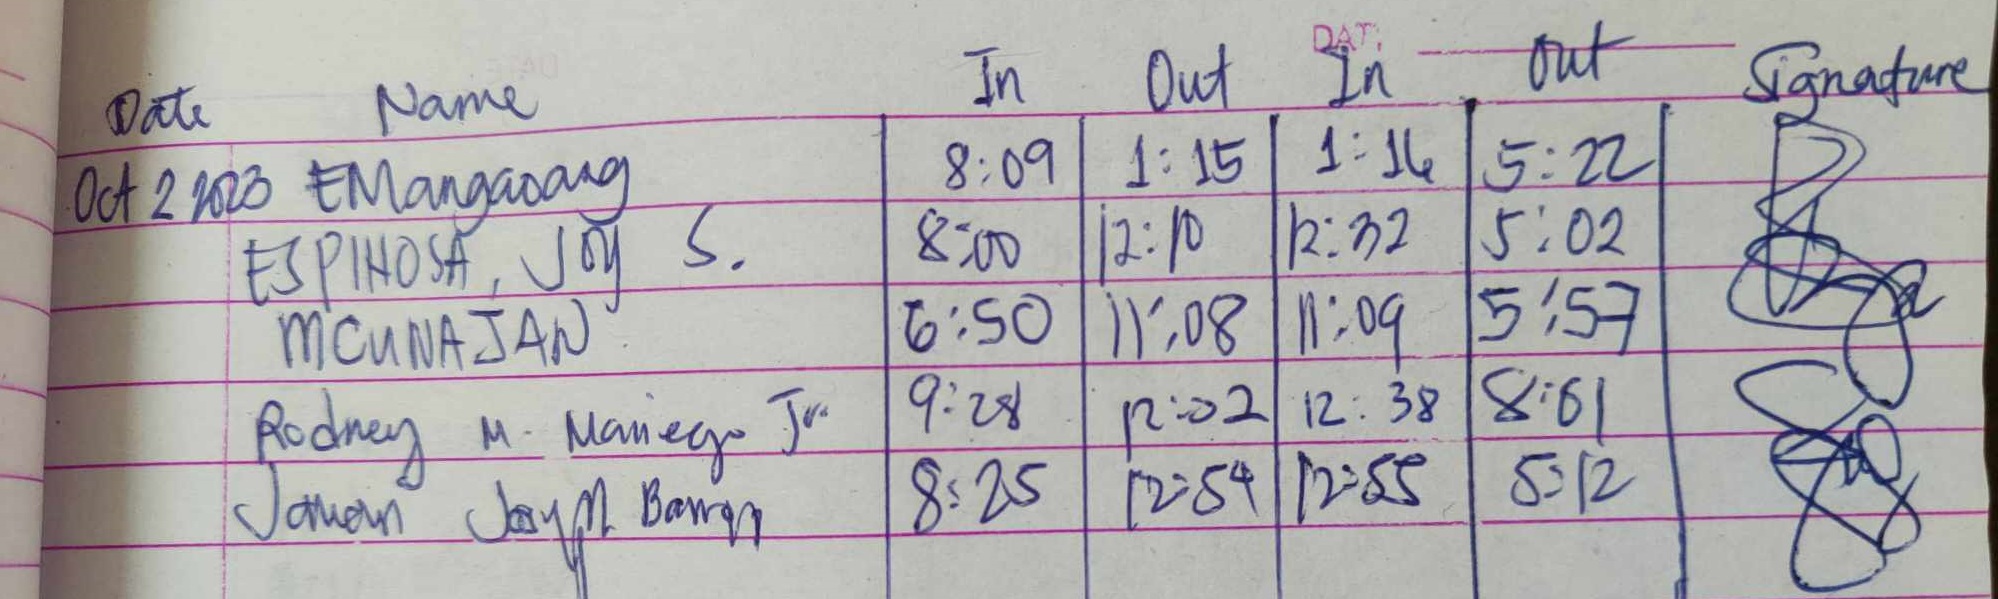 DATE
Date Name In Out In Out Signature
Oct 2 2023 EMangaoang 8:09 1:15 1:16 5:22
ESPINOSA, JOY S. 8:00 12:10 12:32 5:02
MCUNAJAN 6:50 11:08 11:09 5:57
Rodney M. Maniego Jr. 9:28 12:02 12:38 8:01
8:25 12:54 12:55 5:12